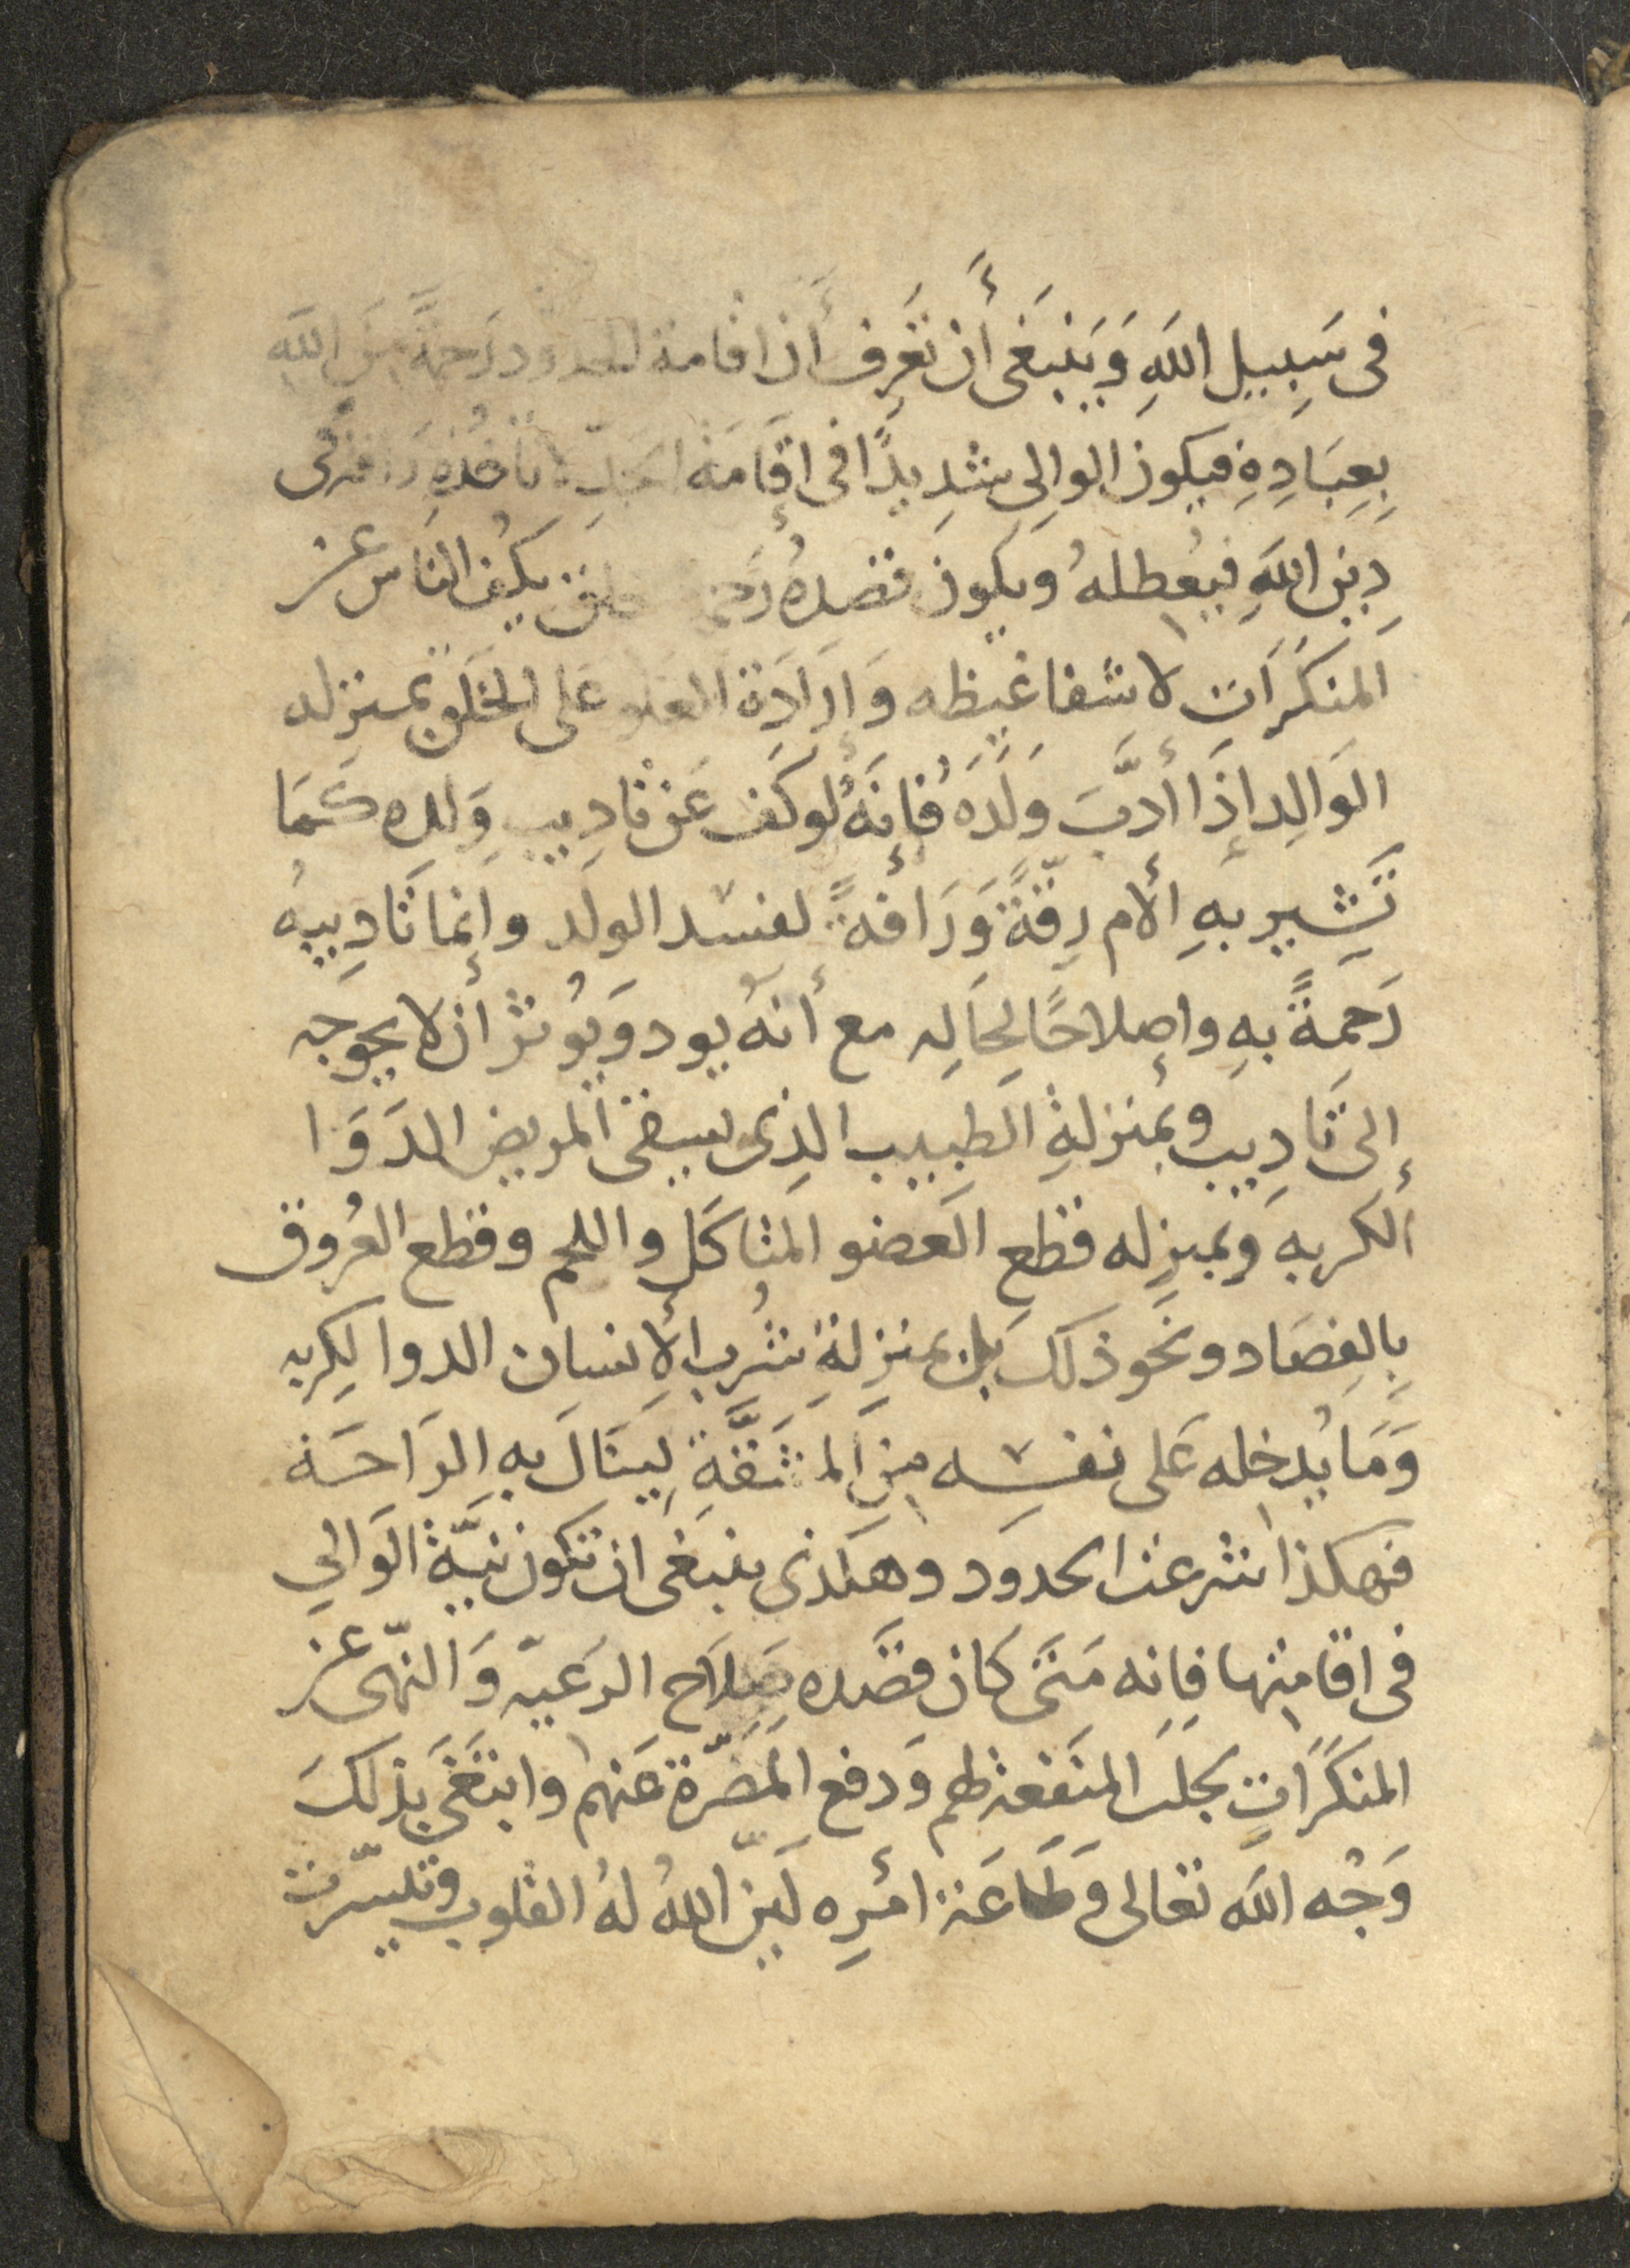 فى سَبِيلِ اللهِ وَيَنبَغى أَن تَعرِف أَن اقامة الحدود رَحمَةً مِنَ اللهِ
بِعِبَادِهِ فيكون الوالِى شَدِيدًا فى اقَامَة الحَدِّ لا تأخُذهِ رَافة فى
دِينِ اللهِ فيُعطلهُ ويكونَ قصدهُ رَحمة الخلق يكُف الناس عن
المنكَرَاتِ لا شفا غيظه وَإِرَادَة العلو على الخَلق بمنزله
الوَالِد إِذَا أَدَّبَ وَلَدَهُ فَإِنَهُ لو كَف عَن تادِيبِ وَلده كَمَا
تَشِير بهِ الأم رِقّةً وَرَأفةً لفسد الولد وانما تَادِيبهُ
رَحمَةً بهِ وإصلاحًا لِحَالِه مع أنهُ يود وَيُوثر ان لا يحوجه
إلى تَادِيب وبمنزلةِ الطبِيب الذِى يسقى المريض الدَوَا
ألكريه وَبمنزِله قطع العَضو المتاكَل واللحم وقطع العُروق
بِالفِصَاد ونحو ذلكَ بَل بمنزلةِ شُرب الأنسان الدوا لكِريه
وَمَا يُدخله عَلى نفسِه مِنَ المشَقَّةِ لِيَنَالَ بهِ الرَاحَة
فهكذا شرعت الحدود وهكذى ينبغى ان تكون نيَّة الوَالي
فى اقامتِها فإِنه مَتَى كان قصَده صَلاح الرَعيّه وَالنّهى عن
المنكَرَاتِ بجلَب المنَفعة لهم وَدفع المَضَرّة عَنهم وابتَغى بذلكَ
وَجْه الله تعالى وَطَاعَة أمرِه لَيّنَ اللهُ لهُ القلوب وتيسّرت